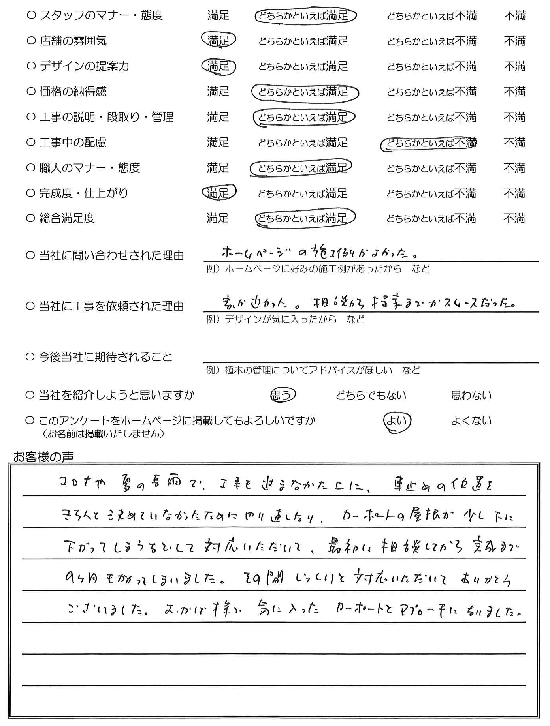 ○ スタッフのマナー・態度 満足 どちらかといえば満足 どちらかといえば不満 不満
○ 店舗の雰囲気 満足 どちらかといえば満足 どちらかといえば不満 不満
○ デザインの提案力 満足 どちらかといえば満足 どちらかといえば不満 不満
○ 価格の納得感 満足 どちらかといえば満足 どちらかといえば不満 不満
○ 工事の説明・段取り・管理 満足 どちらかといえば満足 どちらかといえば不満 不満
○ 工事中の配慮 満足 どちらかといえば満足 どちらかといえば不満 不満
○ 職人のマナー・態度 満足 どちらかといえば満足 どちらかといえば不満 不満
○ 完成度・仕上がり 満足 どちらかといえば満足 どちらかといえば不満 不満
○ 総合満足度 満足 どちらかといえば満足 どちらかといえば不満 不満
○ 当社に問い合わせされた理由 ホームページの施工例がよかった。
例）ホームページに好みの施工例があったから など
○ 当社に工事を依頼された理由 家が近かった。相談から提案までがスムーズだった。
例）デザインが気に入ったから など
○ 今後当社に期待されること
例）植木の管理についてアドバイスがほしい など
○ 当社を紹介しようと思いますか 思う どちらでもない 思わない
○ このアンケートをホームページに掲載してもよろしいですか よい よくない
（お名前は掲載いたしません）
お客様の声
コロナや夏の長雨で、工事も進まなかた上に、車止めの位置を
きちんと決めていなかたためにやり直したり、カーポートの屋根が少し下に
下がってしまうなどして対応いただいて、最初に相談してから完成まで
9ヶ月もかかってしまいました。その間じっくりと対応いただいてありがとう
ございました。おかげ様で気に入ったカーポートとアプローチになりました。